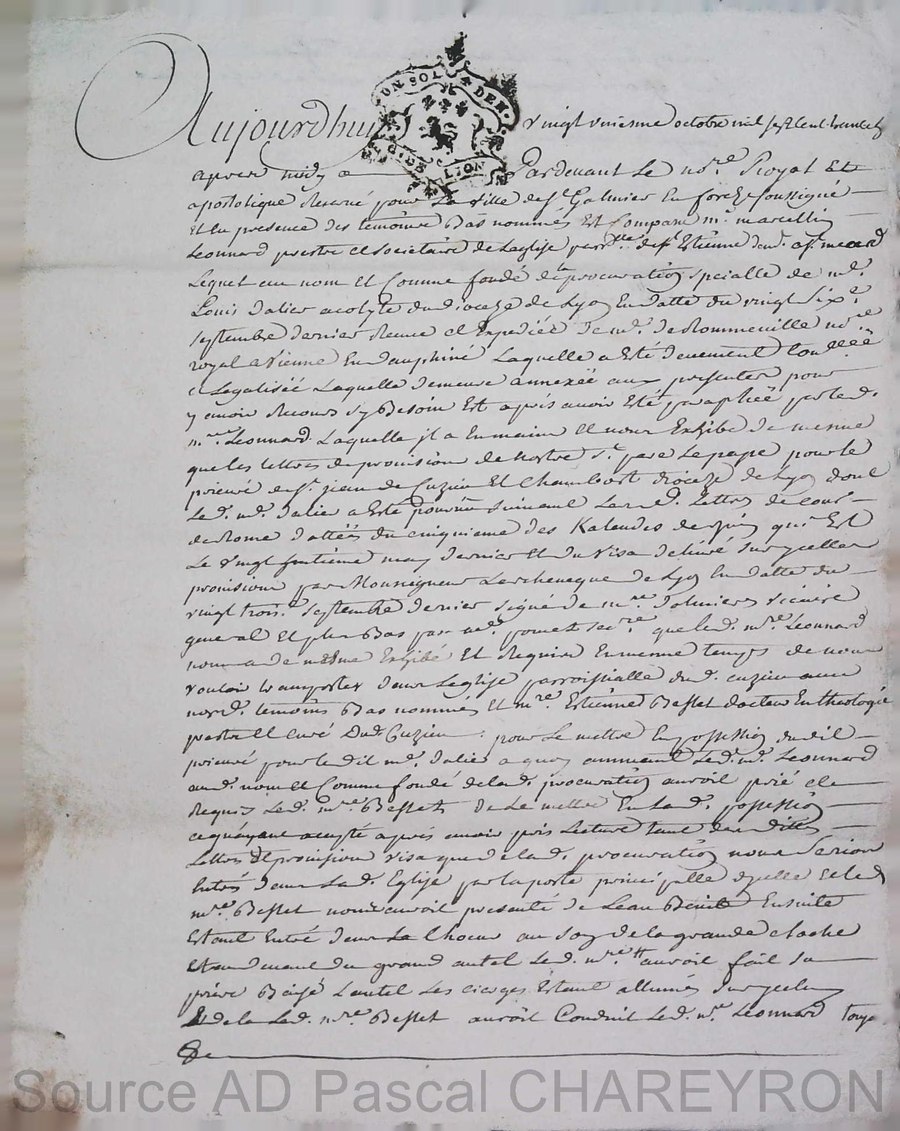 Aujourdhuy vingt uniesme octobre mil sept cent trente
UN SOL DEN
G. DE LION
apres midy a Pardevant Le no.re Royal Et
apostolique Reservé pour La Ville de S.t Galmier En forez soussigné
Et En presence des temoins Bas nommés Est Comparu m.e marcellin
Leonnard prestre et societaire de Leglise de S.t Estienne
Lequel au nom Et Comme fondé de procuration specialle de m.e
Louis Dalier acolyte du dioceze de Lyon En datte du vingt Six.e
septembre dernier Receue et Expediée de m.e de Rommeville no.re
royal a Vienne En dauphiné Laquelle a Esté deuement
et Legalisée Laquelle demeure annexée aux presentes pour
y avoir Recours sy Besoin Est apres avoir Esté paraphée par led.
m.re Leonnard Laquelle jl a En main Et nous Exhibe de mesme
que les lettres de provision de nostre S.t pere Le pape pour le
prieuré de S.t jean de Cuzieu Et Chambost dioceze de Lyon dont
Led. m.e Dalier a Esté pourveu suivant Lesd. Lettres de cour
de Rome dattées du cinquieme des Kalendes de juin qui Est
Le vingt huitième may dernier Et du Visa delivré sur ycelles
provision par Monseigneur Larcheveque de Lyon En datte du
vingt trois.e Septembre dernier signé de m.re Vicaire
general Et plus Bas par m.e secre.re que led. m.re Leonnard
nous a de mesme Exhibé Et Requis En mesme temps de nous
vouloir transporter dans Leglise parroissialle dud. cuzieu avec
nosd. temoins Bas nommés Et m.re Estienne Besset docteur En theologie
prestre Et curé dud. Cuzieu pour Le mettre En possession dudit
prieuré pour ledit m.e Dalier a quoy Led. m.e Leonnard
aud. nom Et Comme fondé de lad. procuration auroit prié et
Requis Led. m.re Besset de Le mettre En Lad. possession
ce quayant accepté apres avoir pris Lecture tant des dittes
Lettres de provision visa que de lad. procuration nous serions
Entrés dans Lad. Eglise par la porte principalle dycelle Et led
m.re Besset nous auroit presenté de Leau Benite Ensuitte
Estant Entré dans Le Choeur au son de la grande cloche
Et au devant du grand autel Led. m.re auroit fait sa
priere Baisé Lautel Les cierges Estant allumés sur yceluy
Et de la Led. m.re Besset auroit Conduit Led. m.e Leonnard
Source AD Pascal CHAREYRON